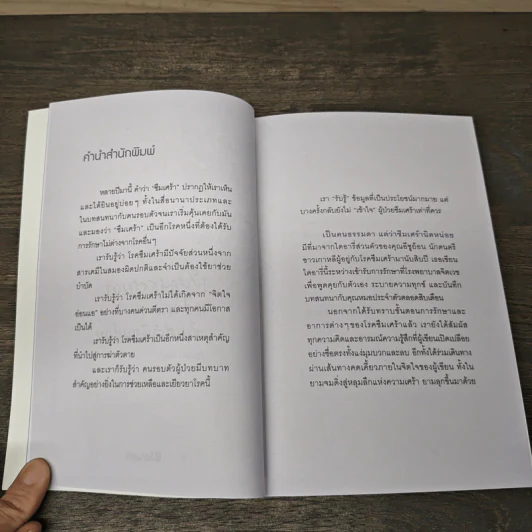 คำนำสำนักพิมพ์
หลายปีมานี้ คำว่า "ซึมเศร้า" ปรากฏให้เราเห็น
และได้ยินอยู่บ่อยๆ ทั้งในสื่อนานาประเภทและ
ในบทสนทนากับคนรอบตัวจนเราเริ่มคุ้นเคยกับมัน
และมองว่า "ซึมเศร้า" เป็นอีกโรคหนึ่งที่ต้องได้รับ
การรักษาไม่ต่างจากโรคอื่นๆ
เรารับรู้ว่า โรคซึมเศร้ามีปัจจัยส่วนหนึ่งจาก
สารเคมีในสมองผิดปกติและจำเป็นต้องใช้ยาช่วย
บำบัด
เรารับรู้ว่า โรคซึมเศร้าไม่ได้เกิดจาก "จิตใจ
อ่อนแอ" อย่างที่บางคนด่วนตีตรา และทุกคนมีโอกาส
เป็นได้
เรารับรู้ว่า โรคซึมเศร้าเป็นอีกหนึ่งสาเหตุสำคัญ
ที่นำไปสู่การฆ่าตัวตาย
และเราก็รับรู้ว่า คนรอบตัวผู้ป่วยมีบทบาท
สำคัญอย่างยิ่งในการช่วยเหลือและเยียวยาโรคนี้
เรา "รับรู้" ข้อมูลที่เป็นประโยชน์มากมาย แต่
บางครั้งกลับยังไม่ "เข้าใจ" ผู้ป่วยซึมเศร้าเท่าที่ควร
เป็นคนธรรมดา แค่ว่าซึมเศร้านิดหน่อย
มีที่มาจากไดอารี่ส่วนตัวของคุณอีซูย็อน นักดนตรี
ชาวเกาหลีผู้อยู่กับโรคซึมเศร้ามานับสิบปี เธอเขียน
ไดอารี่นี้ระหว่างเข้ารับการรักษาที่โรงพยาบาลจิตเวช
เพื่อพูดคุยกับตัวเอง ระบายความทุกข์ และบันทึก
บทสนทนากับคุณหมอประจำตัวตลอดสิบเดือน
นอกจากได้รับทราบขั้นตอนการรักษาและ
อาการต่างๆของโรคซึมเศร้าแล้ว เรายังได้สัมผัส
ทุกความคิดและอารมณ์ความรู้สึกที่ผู้เขียนเปิดเปลือย
อย่างซื่อตรงทั้งแง่มุมบวกและลบ อีกทั้งได้ร่วมเดินทาง
ผ่านเส้นทางคดเคี้ยวภายในจิตใจของผู้เขียน ทั้งใน
ยามจมดิ่งสู่หลุมลึกแห่งความเศร้า ยามลุกขึ้นมาด้วย